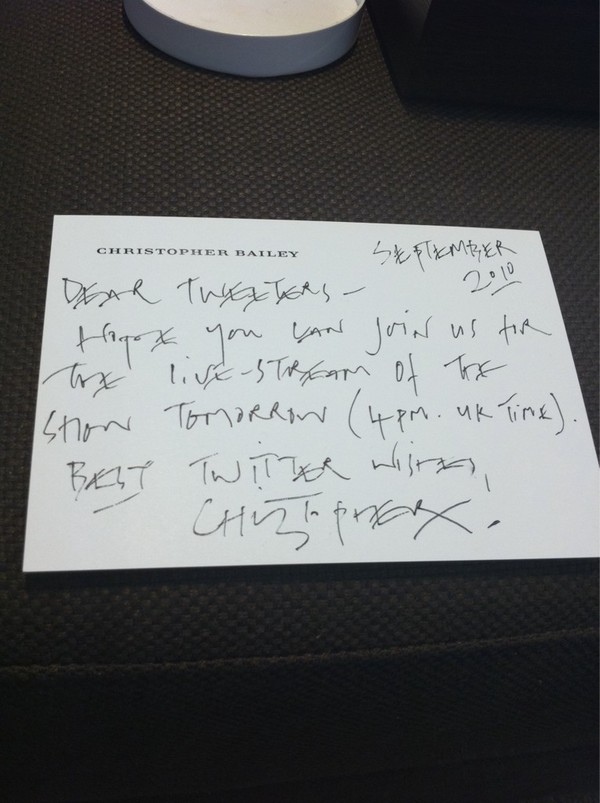 CHRISTOPHER BAILEY
SEPTEMBER
2010
DEAR TWEETERS -
HOPE YOU CAN JOIN US FOR
THE LIVE-STREAM OF THE
SHOW TOMORROW (4PM. UK TIME).
BEST TWITTER WISHES,
CHRISTOPHER X.